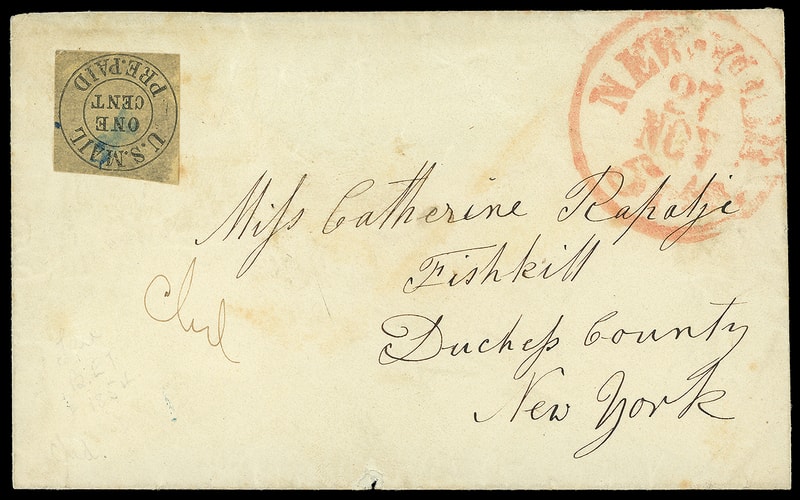 U.S. MAIL
PRE-PAID
ONE
CENT
NEW-YORK
27
NOV
Miſs Catherine Rapalji
Fishkill
Ducheſs County
New York